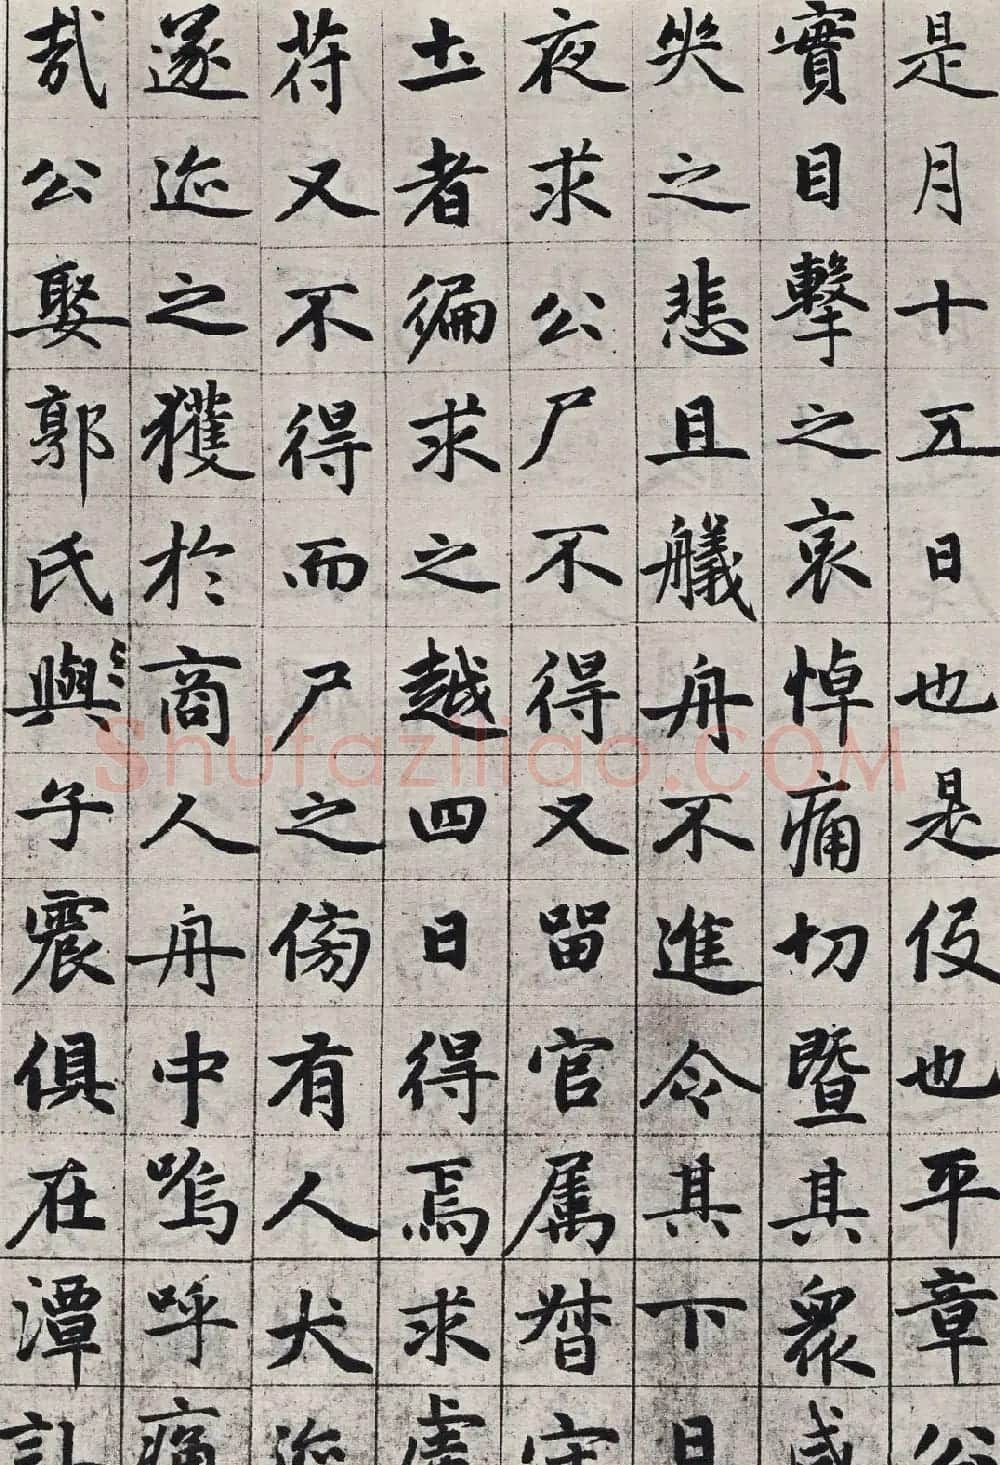 是月十五日也是役也平章公
實目擊之哀悼痛切暨其衆咸
哭之悲且艤舟不進令其下日
夜求公尸不得又留官属督守
土者徧求之越四日得焉求虎
符又不得而尸之傍有人犬迹
遂迹之獲於商人舟中嗚呼痛
哉公娶郭氏與子震俱在潭訃
Shufaziliao.COM